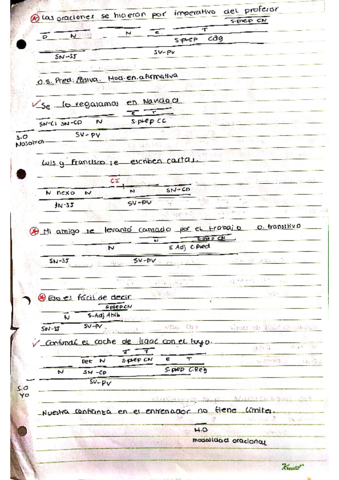 Las oraciones se hicieron por imperativo del profesor
S.prep CN
D N N E T
S.prep Cag
SN-SJ SV-PV
O.S. Pred. Pasiva. Mod. en. afirmativa
Se lo regalamos en Navidad
E T
SN-CI SN-CD N S.prep CC
S.O SV-PV
Nosotros
Luis y Francisco se escriben cartas.
CI
N nexo N N SN-CD
SN-SJ SV-PV
Mi amigo se levantó cansado por el trabajo O. transitivo
S.prep CN
N N S.Adj C.Pred
SN-SJ SV-PV
Eso es fácil de decir
S.prep CN
N S.Adj Atrib
SN-SJ SV-PV
Confundí el coche de Isaac con el tuyo.
E T
Det N S.prep CN E T
N SN-CD S.prep C.Reg
S.O SV-PV
YO
Nuestra confianza en el entrenador no tiene límites.
M.O
modalidad oracional